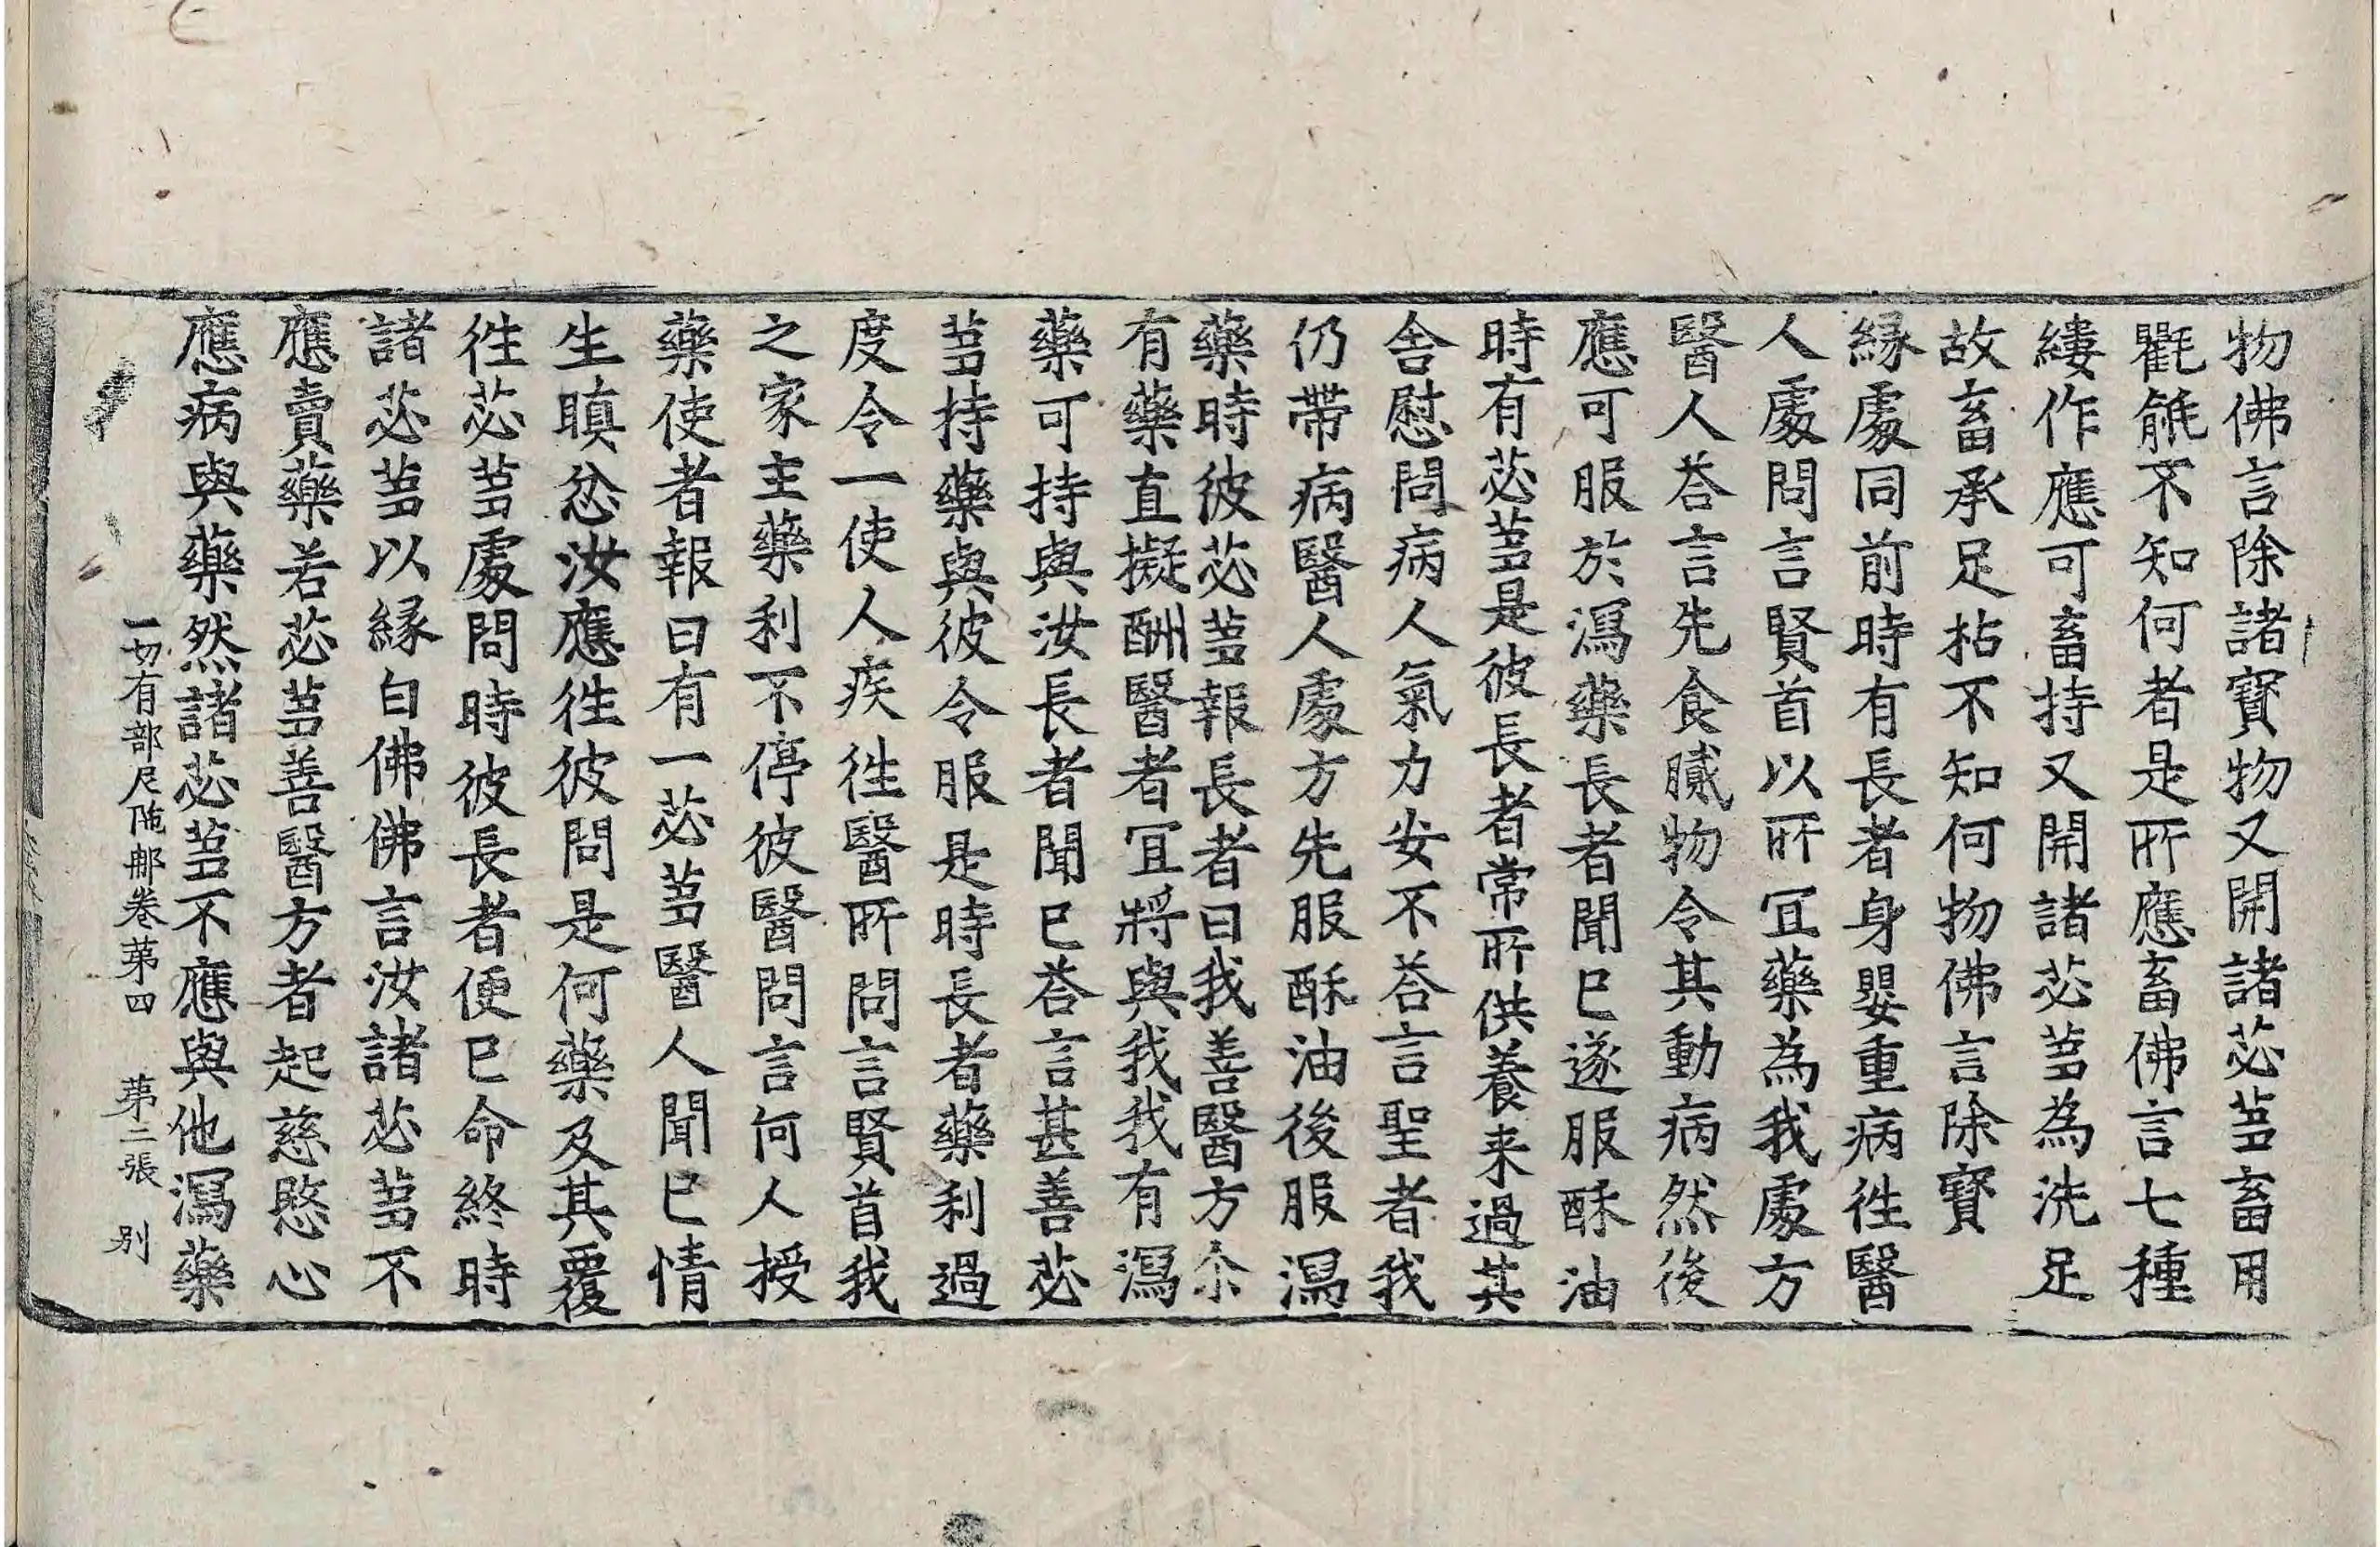 物佛言除諸寳物又開諸苾蒭畜用
氍毹不知何者是所應畜佛言七種
縷作應可畜持又開諸苾蒭為洗足
故畜承足枯不知何物佛言除寳
縁處同前時有長者身嬰重病徃醫
人處問言賢首以所冝藥為我處方
醫人荅言先食膩物令其動病然後
應可服於瀉藥長者聞已遂服酥油
時有苾蒭是彼長者常所供養来過其
舎慰問病人氣力安不荅言聖者我
仍帶病醫人處方先服酥油後服瀉
藥時彼苾蒭報長者曰我善醫方亦
有藥直擬酬醫者冝將與我我有瀉
藥可持與汝長者聞已荅言甚善苾
蒭持藥與彼令服是時長者藥利過
度令一使人疾徃醫所問言賢首我
之家主藥利不停彼醫問言何人授
藥使者報曰有一苾蒭醫人聞已情
生瞋忿汝應徃彼問是何藥及其覆
徃苾蒭處問時彼長者便已命終時
諸苾蒭以縁白佛佛言汝諸苾蒭不
應賣藥若苾蒭善醫方者起慈愍心
應病與藥然諸苾蒭不應與他瀉藥
一切有部尼陁那卷苐四　苐二張　别